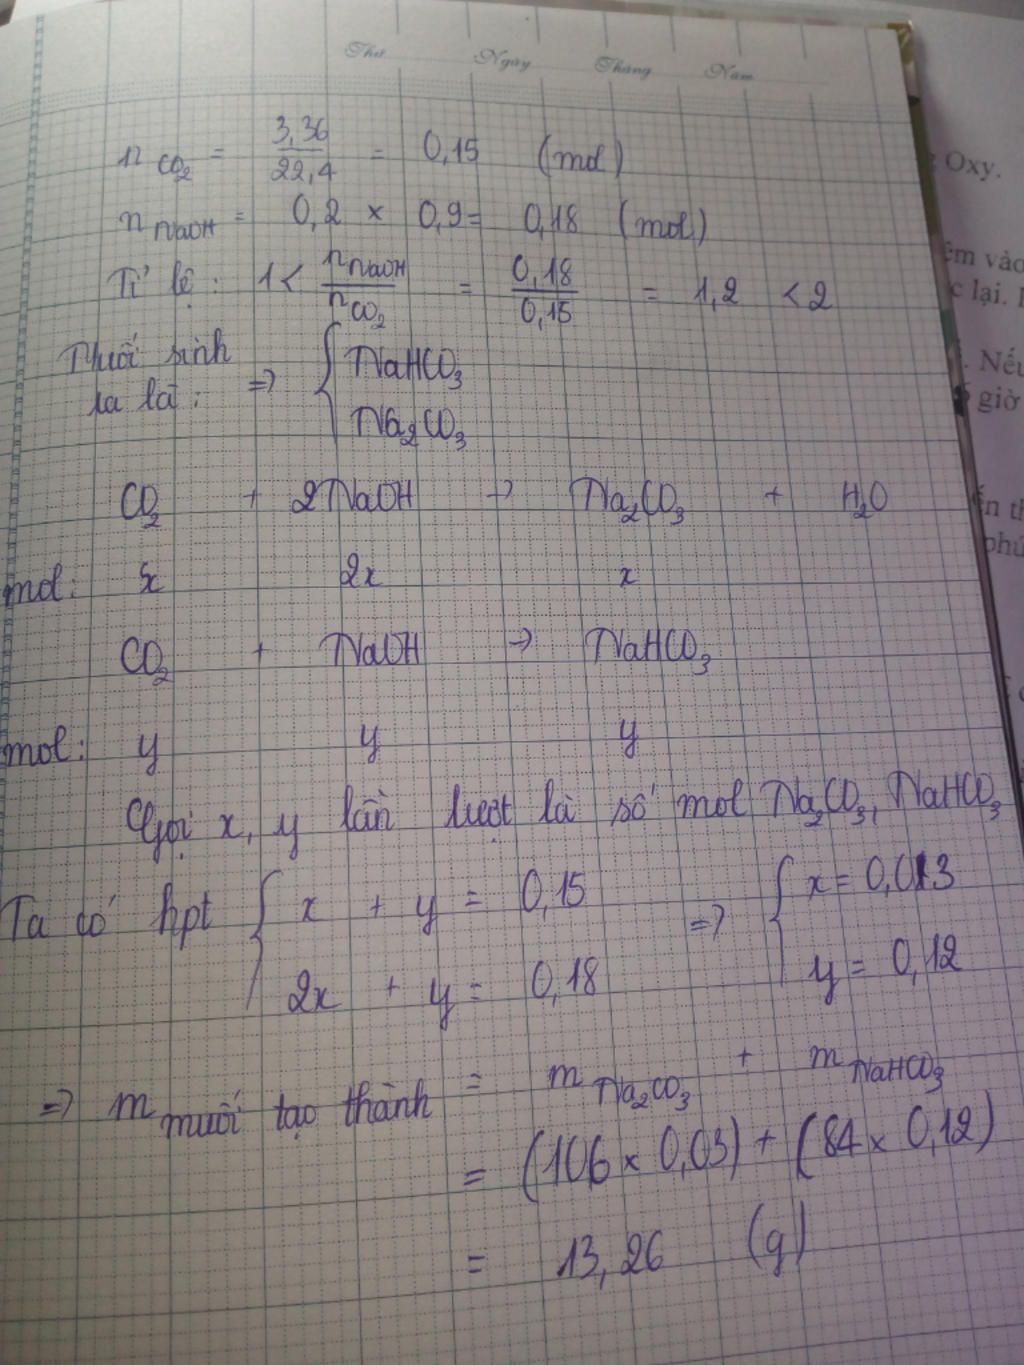 Thứ Ngày Tháng Năm
n CO2 = 3,36 / 22,4 = 0,15 (mol)
n NaOH = 0,2 × 0,9 = 0,18 (mol)
Tỉ lệ: 1 < nNaOH / nCO2 = 0,18 / 0,15 = 1,2 < 2
Muối sinh ra là: => { NaHCO3
Na2CO3
CO2 + 2NaOH → Na2CO3 + H2O
mol: x 2x x
CO2 + NaOH → NaHCO3
mol: y y y
Gọi x, y lần lượt là số mol Na2CO3, NaHCO3
Ta có hpt { x + y = 0,15 => { x = 0,03
2x + y = 0,18 y = 0,12
=> m muối tạo thành = m Na2CO3 + m NaHCO3
= (106 × 0,03) + (84 × 0,12)
= 13,26 (g)
Oxy.
êm vào
c lại.
Nếu
giờ